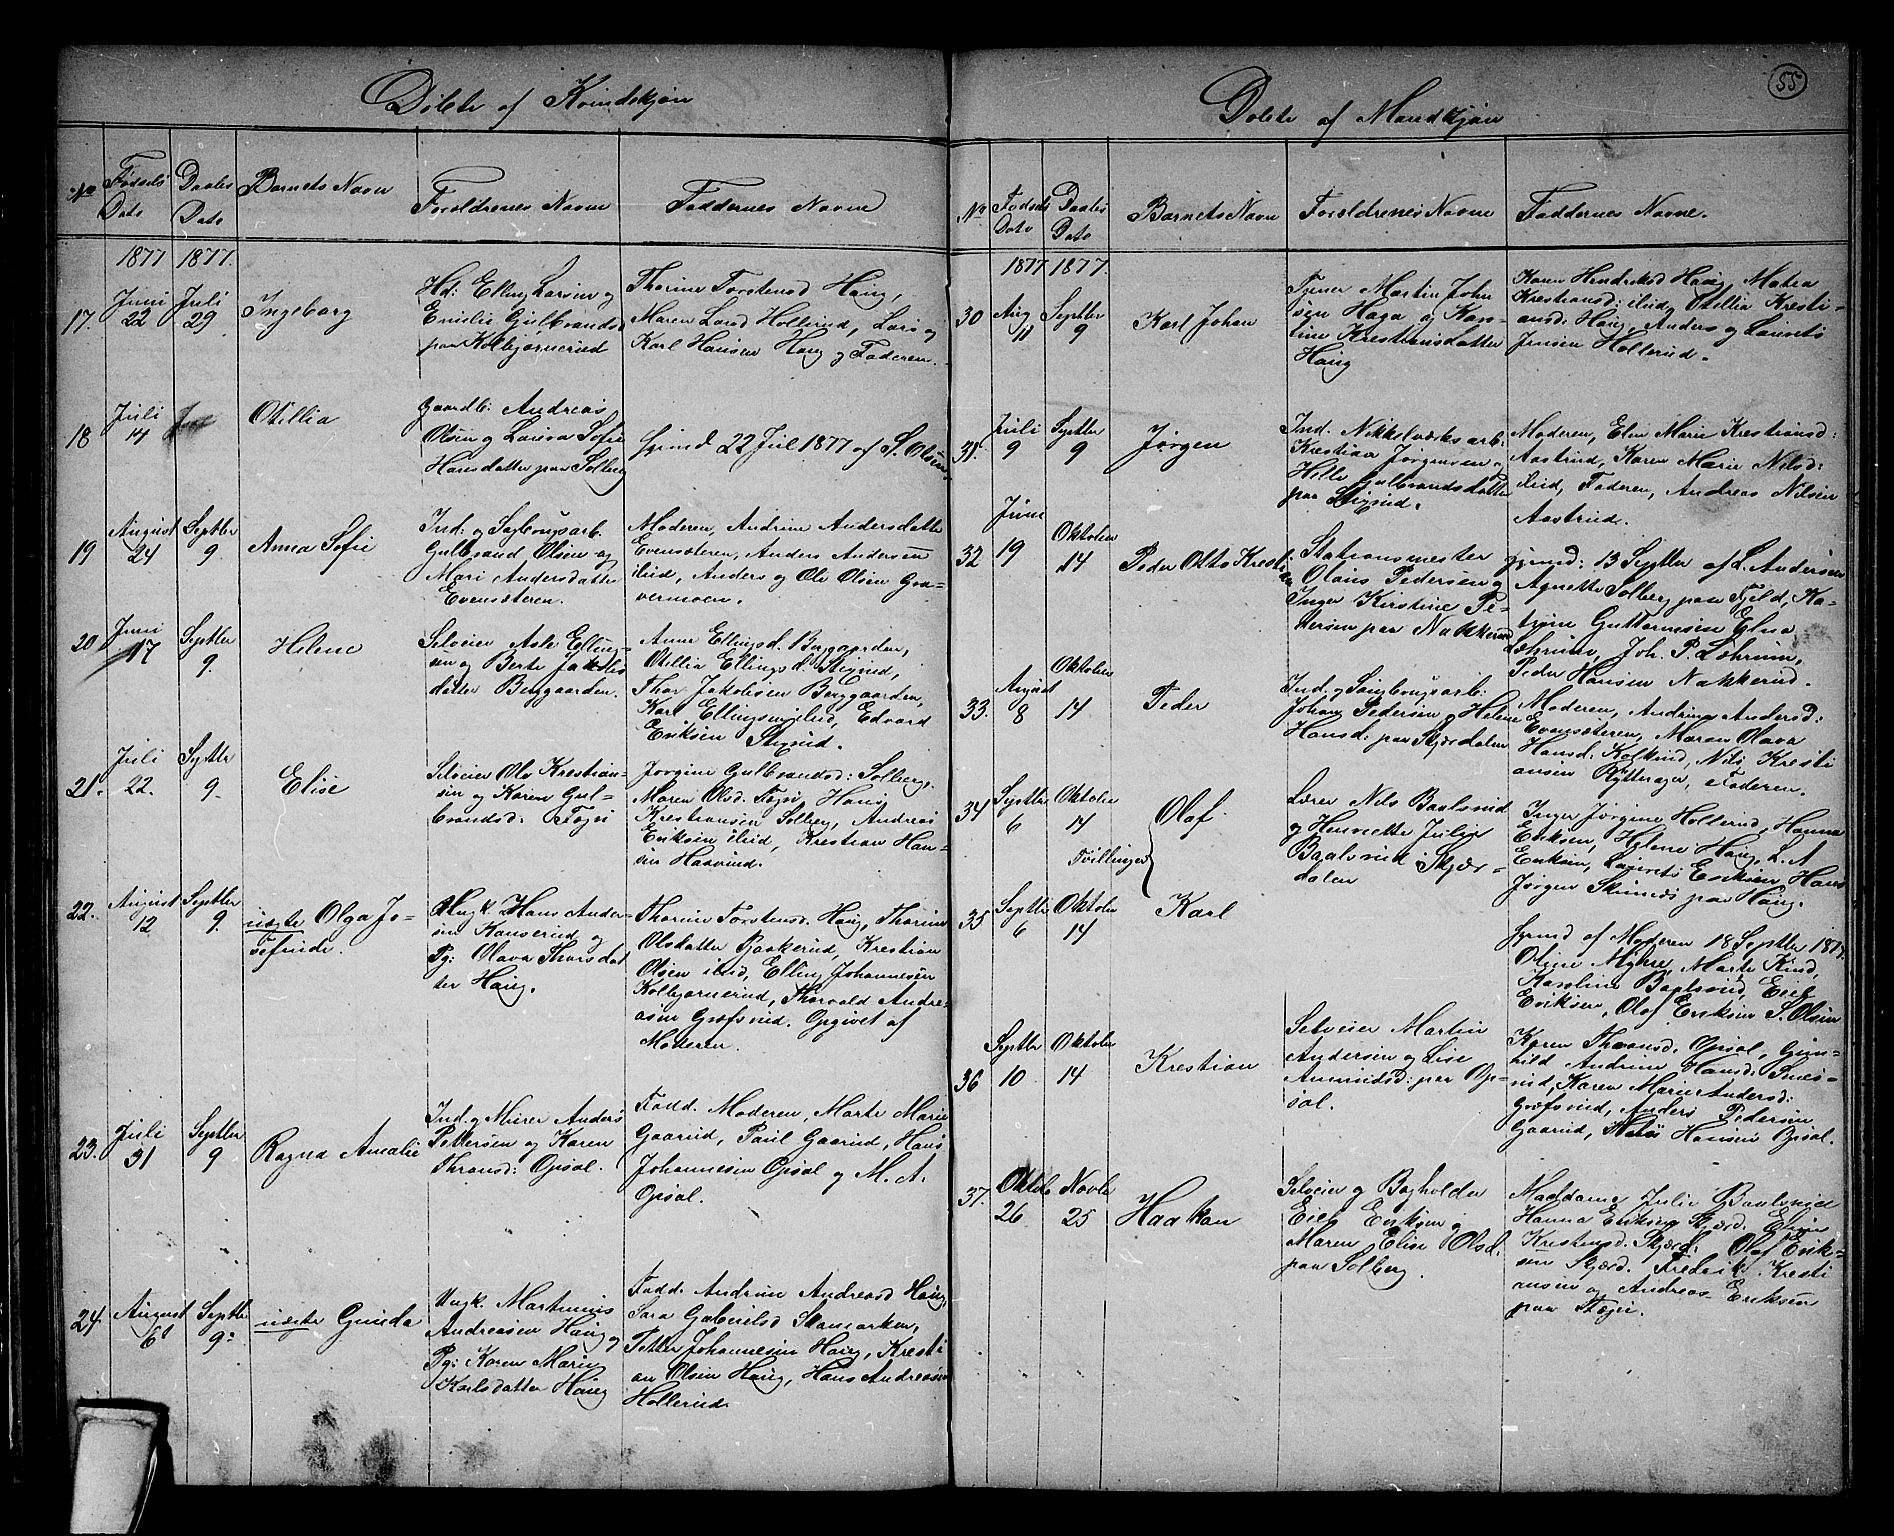 Döbte af Kvindekjøn
No
Fødsels Dato
Daabs Dato
Barnets Navn
Forældrenes Navne
Faddernes Navne
1877 1877.
17.
Juni 22
Juli 29
Ingeborg
Hd: Elling Larsen og
Emilie Gulbrandsd
paa Kolbjørnerud
Thorine Torstensd Haug,
Maren Larsd Hollerud, Lars og
Karl Hansen Haug og Faderen.
18
Juli 14
Otillia
Gaardb: Andreas
Olsen og Lovisa Sofie
Hansdatter paa Solberg
hjemd 22 Jul 1877 af S. Olsen
19
August 24
Septbr 9.
Anna Sofie
Ind. og Sagbrugsarb.
Gulbrand Olsen og
Mari Andersdatter
Evensæteren.
Moderen, Andrine Andersdatter
Evensæteren, Anders Andersen
ibid, Anders og Ole Olsen Gra-
vermoen.
20
Juni 17
Septbr 9.
Helene
Selveier Asle Elling-
sen og Berte Jakobs
datter Berggaarden.
Anne Ellingsd. Berggarden,
Otillia Ellingsd. Stigrud,
Thor Jakobsen Berggaarden,
Karl Ellingsen ibid, Edvard
Eriksen Stigrud.
21.
Juli 22.
Septbr 9.
Elise
Selveier Ole Krestian-
sen og Karen Gul-
brandsd: Fagri
Jørgine Gulbrandsd: Solberg,
Maren Olsd. Hans
Krestiansen Solberg, Andreas
Eriksen ibid, Krestian Han-
sen Haavrud.
22.
August 12
Septbr 9.
uægte Olga Jo-
sefine.
Ungk. Hans Ander-
sen Hanserud og
Pg: Olava Thorsdat
ter Haug.
Thorine Torstensd. Haug, Thorine
Olsdatter Baakerud, Krestian
Olsen ibid, Elling Johannesen
Kolbjørnerud, Thorvald Andre-
asen Græfsrud. Opgivet af
Moderen.
23.
Juli 31
Septbr 9
Ragna Amalie
Ind. og Murer Anders
Pettersen og Karen
Thransd: Opsal.
Fadd. Moderen, Marte Marie
Gaarud, Paul Gaarud, Hans
Johannesen Opsal og M. A.
Opsal.
24
August 6
Septbr 9.
uægte Gunda
Ungk. Martinius
Andreasen Haug og
Pg: Karen Marie
Karlsdatter Haug
Fadd. Andrine Andreasd Haug,
Sara Gabrielsd Stamarken,
Petter Johannesen Haug, Kresti
an Olsen Haug, Hans Andreasen
Hollerud.
55
Døbte af Mandkjøn
No
Fødsels Dato
Daabs Dato
Barnets Navn
Forældrenes Navne
Faddernes Navne.
1877 1877.
30
Aug 11
Septbr 9
Karl Johan
Tjener Martin Johan
sen Haga og Karo-
line Krestiansdatter
Haug
Karen Hendriksd Haug, Matea
Krestiansd: ibid, Otillia Kresti-
ansd: Haug, Anders og Laurits
Jensen Hollerud.
31.
Juli 9
Septbr 9
Jørgen
Ind. Nikkelværksarb.
Krestian Jørgensen og
Helle Gulbrandsdatter
paa Stigrud.
Moderen, Elen Marie Krestiansd:
Aastrud, Karen Marie Nilsd:
ibid, Faderen, Andreas Nilsen
Aastrud.
32
Juni 19
Oktober 14
Peder Otto Krestian
Stationsmester
Olaus Pedersen og
Inger Kirstine Pe-
dersen paa Nakkerud
hjemd: 13 Septbr af L. Andersen
Agnette Solberg paa Fjeld, Ka-
trine Guttormsen Elna
Læhrum, Joh. P. Læhrum,
Peder Hansen Nakkerud.
33.
August 8
Oktober 14
Peder
Ind. og Saugbrugsarb:
Johan Pedersen og Helene
Hansd. paa Skjærdalen
Moderen, Andrine Andersd:
Evensæteren, Maren Olava
Hansd: Nils Kresti
ansen Rytterager, Faderen.
34
Septbr 6
Oktober 14
Tvillinger
Olaf
Lærer Nils Baalsrud
og Henriette Julie
Baalsrud Skjær-
dalen
Inger Jørgine Hollerud, Hanna
Eriksen, Helene Haug, L. A
Eriksen, Laurits Eriksen, Hans
Jørgen paa Haug.
35
Septbr 6
Oktober 14
Karl
hjemd af Moderen 18 Septbr 1877.
Marte Rud,
Karoline Baalsrud, Erik
Eriksen, Olaf Eriksen S. Olsen
36
Septbr 10
Oktober 14
Krestian
Selveier Martin
Andersen og Lise
Amundsd: paa Op-
sal.
Karen Thransd. Opsal, Gun-
hild Andrine Hansd: Snes-
rud, Karen Marie Andersd:
Græfsrud, Anders Pedersen
Gaarud, Hans Hansen Opsal.
37.
Oktob 26
Novbr 25
Haakon
Selveier og Bogholder
Erik Eriksen og
Maren Elise Olsd.
paa Solberg.
Maddame Julie Baalsrud
Hanna Eriksen Skjærd. Elise
Kristensd. Skjærd: Olaf Erik-
sen Skjærd. Fredrik Kresti
ansen og Andreas Eriksen
paa Fageri.